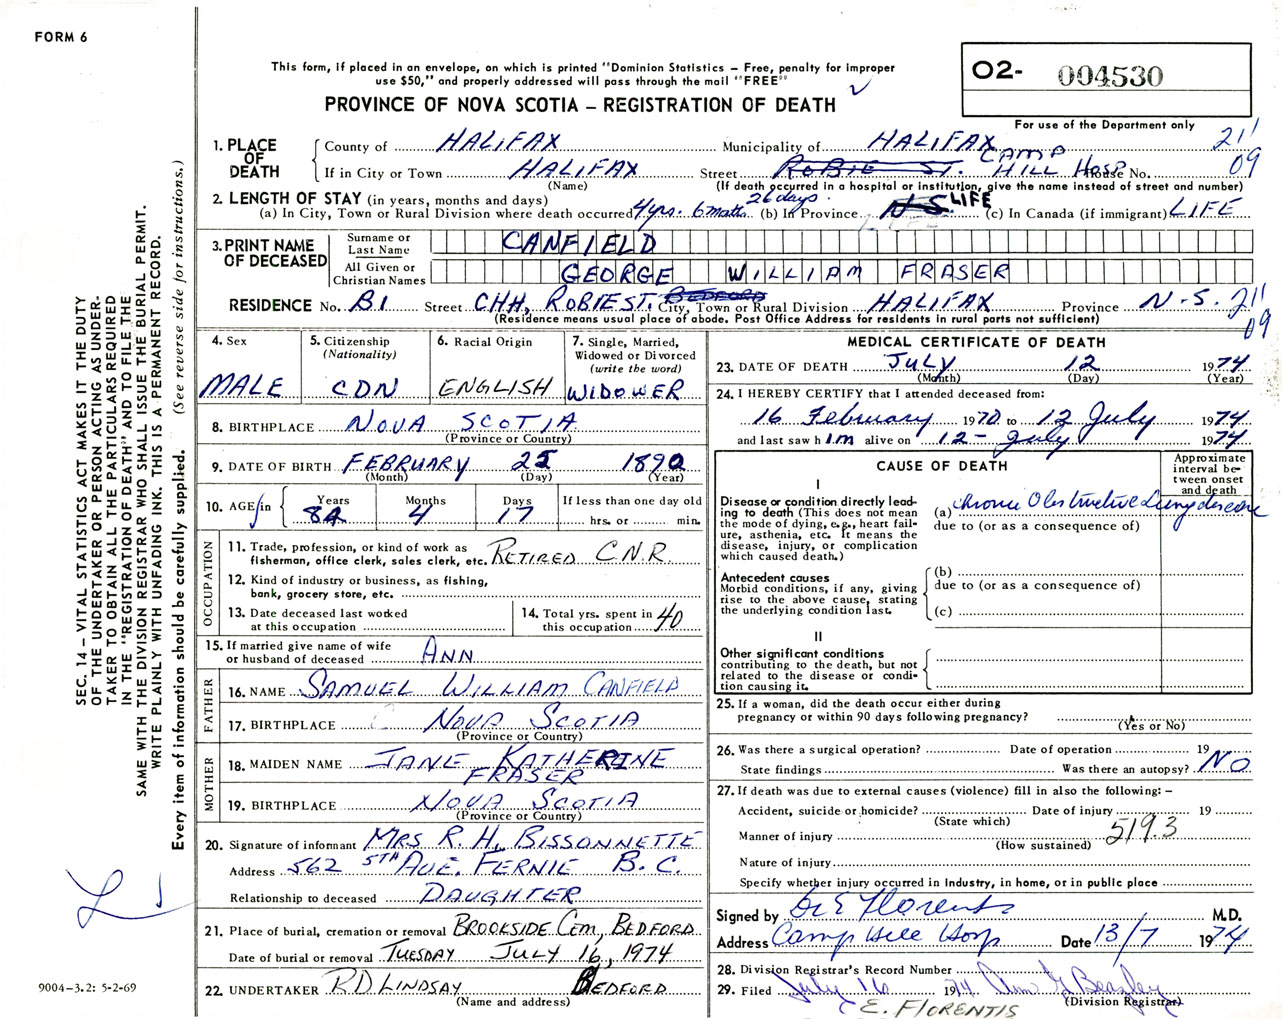 FORM 6
This form, if placed in an envelope, on which is printed "Dominion Statistics – Free, penalty for improper
use $50," and properly addressed will pass through the mail "FREE"
PROVINCE OF NOVA SCOTIA – REGISTRATION OF DEATH
O2- 004530
For use of the Department only
SEC. 14 – VITAL STATISTICS ACT MAKES IT THE DUTY
OF THE UNDERTAKER OR PERSON ACTING AS UNDER-
TAKER TO OBTAIN ALL THE PARTICULARS REQUIRED
IN THE "REGISTRATION OF DEATH" AND TO FILE THE
SAME WITH THE DIVISION REGISTRAR WHO SHALL ISSUE THE BURIAL PERMIT.
WRITE PLAINLY WITH UNFADING INK. THIS IS A PERMANENT RECORD.
Every item of information should be carefully supplied. (See reverse side for instructions.)
1. PLACE OF DEATH
County of HALIFAX Municipality of HALIFAX 21
If in City or Town HALIFAX Street ROBIE ST. CAMP HILL HOSP House No. 09
(Name) (If death occurred in a hospital or institution, give the name instead of street and number)
2. LENGTH OF STAY (in years, months and days)
(a) In City, Town or Rural Division where death occurred 4 yrs. 6 mths. 26 days. (b) In Province N.S. LIFE (c) In Canada (if immigrant) LIFE
3. PRINT NAME OF DECEASED
Surname or Last Name CANFIELD
All Given or Christian Names GEORGE WILLIAM FRASER
RESIDENCE No. B1 Street CHH, ROBIE ST. BEDFORD City, Town or Rural Division HALIFAX Province N.S. 21
(Residence means usual place of abode. Post Office Address for residents in rural parts not sufficient) 09
4. Sex MALE
5. Citizenship (Nationality) CDN
6. Racial Origin ENGLISH
7. Single, Married, Widowed or Divorced (write the word) WIDOWER
8. BIRTHPLACE NOVA SCOTIA
(Province or Country)
9. DATE OF BIRTH FEBRUARY 25 1890
(Month) (Day) (Year)
10. AGE in Years 84 Months 4 Days 17 If less than one day old hrs. or min.
OCCUPATION
11. Trade, profession, or kind of work as
fisherman, office clerk, sales clerk, etc. RETIRED C.N.R.
12. Kind of industry or business, as fishing,
bank, grocery store, etc.
13. Date deceased last worked
at this occupation
14. Total yrs. spent in
this occupation 40
15. If married give name of wife
or husband of deceased ANN
FATHER
16. NAME SAMUEL WILLIAM CANFIELD
17. BIRTHPLACE NOVA SCOTIA
(Province or Country)
MOTHER
18. MAIDEN NAME JANE KATHERINE
FRASER
19. BIRTHPLACE NOVA SCOTIA
(Province or Country)
20. Signature of informant MRS R. H. BISSONNETTE
Address 562 5TH AVE. FERNIE B.C.
Relationship to deceased DAUGHTER
21. Place of burial, cremation or removal BROOKSIDE CEM, BEDFORD
Date of burial or removal TUESDAY JULY 16, 1974
22. UNDERTAKER RD LINDSAY BEDFORD
(Name and address)
MEDICAL CERTIFICATE OF DEATH
23. DATE OF DEATH JULY 12 1974
(Month) (Day) (Year)
24. I HEREBY CERTIFY that I attended deceased from:
16 February 1970 to 12 July 1974
and last saw him alive on 12 - July 1974
CAUSE OF DEATH
Approximate
interval be-
tween onset
and death
I
Disease or condition directly lead-
ing to death (This does not
mean the mode of dying, e.g., heart fail-
ure, asthenia, etc. It means the
disease, injury, or complication
which caused death.)
(a) Chronic Obstructive Lung disease
due to (or as a consequence of)
Antecedent causes
Morbid conditions, if any, giving
rise to the above cause, stating
the underlying condition last.
(b)
due to (or as a consequence of)
(c)
II
Other significant conditions
contributing to the death, but not
related to the disease or condi-
tion causing it.
25. If a woman, did the death occur either during
pregnancy or within 90 days following pregnancy?
(Yes or No)
26. Was there a surgical operation? Date of operation 19
State findings Was there an autopsy? NO
27. If death was due to external causes (violence) fill in also the following: –
Accident, suicide or homicide? Date of injury 19
(State which)
Manner of injury 519.3
(How sustained)
Nature of injury
Specify whether injury occurred in Industry, in home, or in public place
Signed by Dr E Florentis M.D.
Address Camp Hill Hosp Date 13/7 1974
28. Division Registrar's Record Number
29. Filed July 16 1974 Ann G Beazley
(Division Registrar)
E. FLORENTIS
9004-3.2: 5-2-69